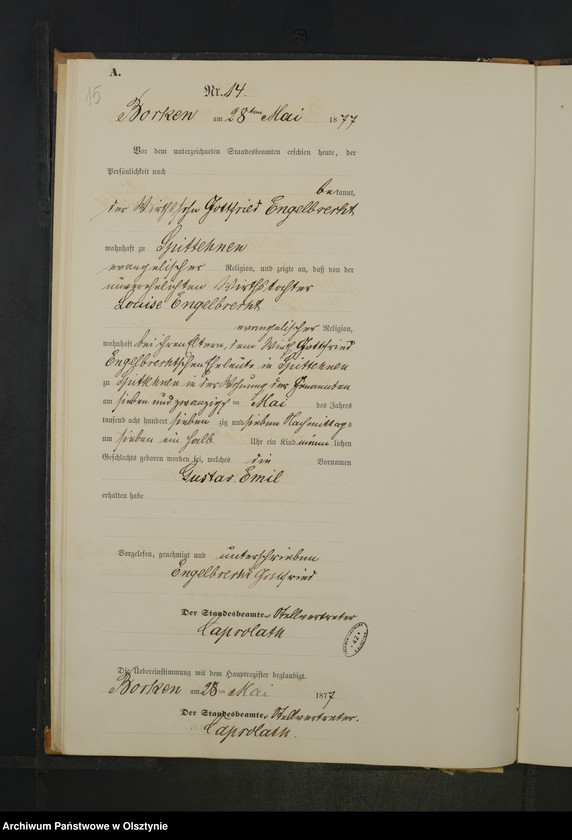 A.
15
Nr. 14.
Borken am 28ten Mai 1877
Vor dem unterzeichneten Standesbeamten erschien heute, der
Persönlichkeit nach
bekannt,
der Wirthssohn Gottfried Engelbrecht
wohnhaft zu Spittehnen
evangelischer Religion, und zeigte an, daß von der
unverehelichten Wirthstochter
Louise Engelbrecht
evangelischer Religion,
wohnhaft bei ihren Eltern, dem Wirth Gottfried
Engelbrechtschen Eheleute in Spittehnen
zu Spittehnen in der Wohnung der Genannten
am sieben und zwanzigsten Mai des Jahres
tausend acht hundert siebenzig und sieben Nachmittags
um sieben ein halb Uhr ein Kind männlichen
Geschlechts geboren worden sei, welches die Vornamen
Gustav Emil
erhalten habe
Vorgelesen, genehmigt und unterschrieben
Engelbrecht Gottfried
Der Standesbeamte. Stellvertreter
Caprolath
Die Uebereinstimmung mit dem Hauptregister beglaubigt.
Borken am 28ten Mai 1877
Der Standesbeamte. Stellvertreter.
Caprolath.
Archiwum Państwowe w Olsztynie